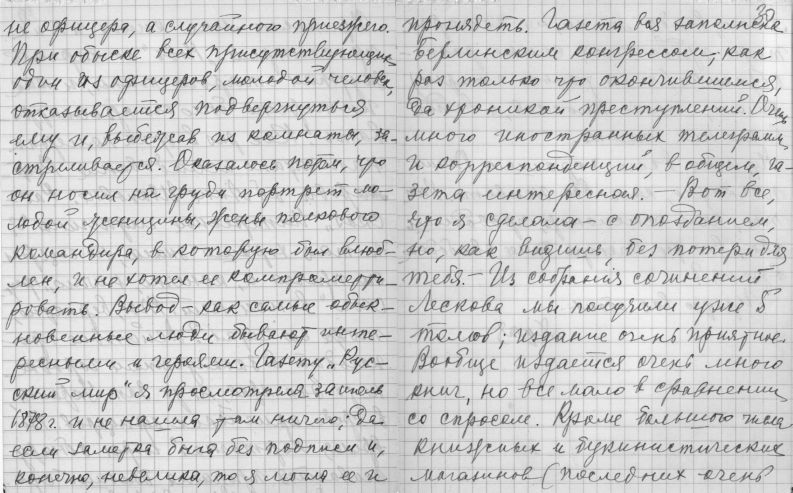 не офицера, а случайного приезжего.
При обыске всех присутствующих
один из офицеров, молодой человек,
отказывается подвергнуться
ему и, выбежав из комнаты, за-
стреливается. Оказалось потом, что
он носил на груди портрет мо-
лодой женщины, жены полкового
командира, в которую был влюб-
лен, и не хотел ее компромети-
ровать. Вывод – как самые обык-
новенные люди бывают инте-
ресными и героями. Газету „Рус-
ский мир" я просмотрела за июль
1878 г. и не нашла там ничего; да
если заметка была без подписи и,
конечно, невелика, то я могла ее и
проглядеть. Газета вся заполнена
берлинским конгрессом, как
раз только что окончившимся,
да хроникой преступлений. Очень
много иностранных телеграмм
и корреспонденций, в общем, га-
зета интересная. – Вот все,
что я сделала – с опозданием,
но, как видишь, без потери для
тебя. – Из собрания сочинений
Лескова мы получили уже 5
томов; издание очень приятное.
Вообще издается очень много
книг, но все мало в сравнении
со спросом. Кроме большого числа
книжных и букинистических
магазинов (последних очень